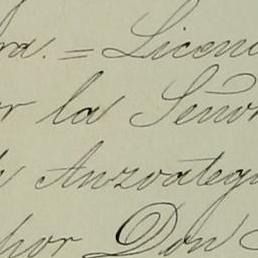 ra. = Licenc
or la Señor
Anzoategu
por Don